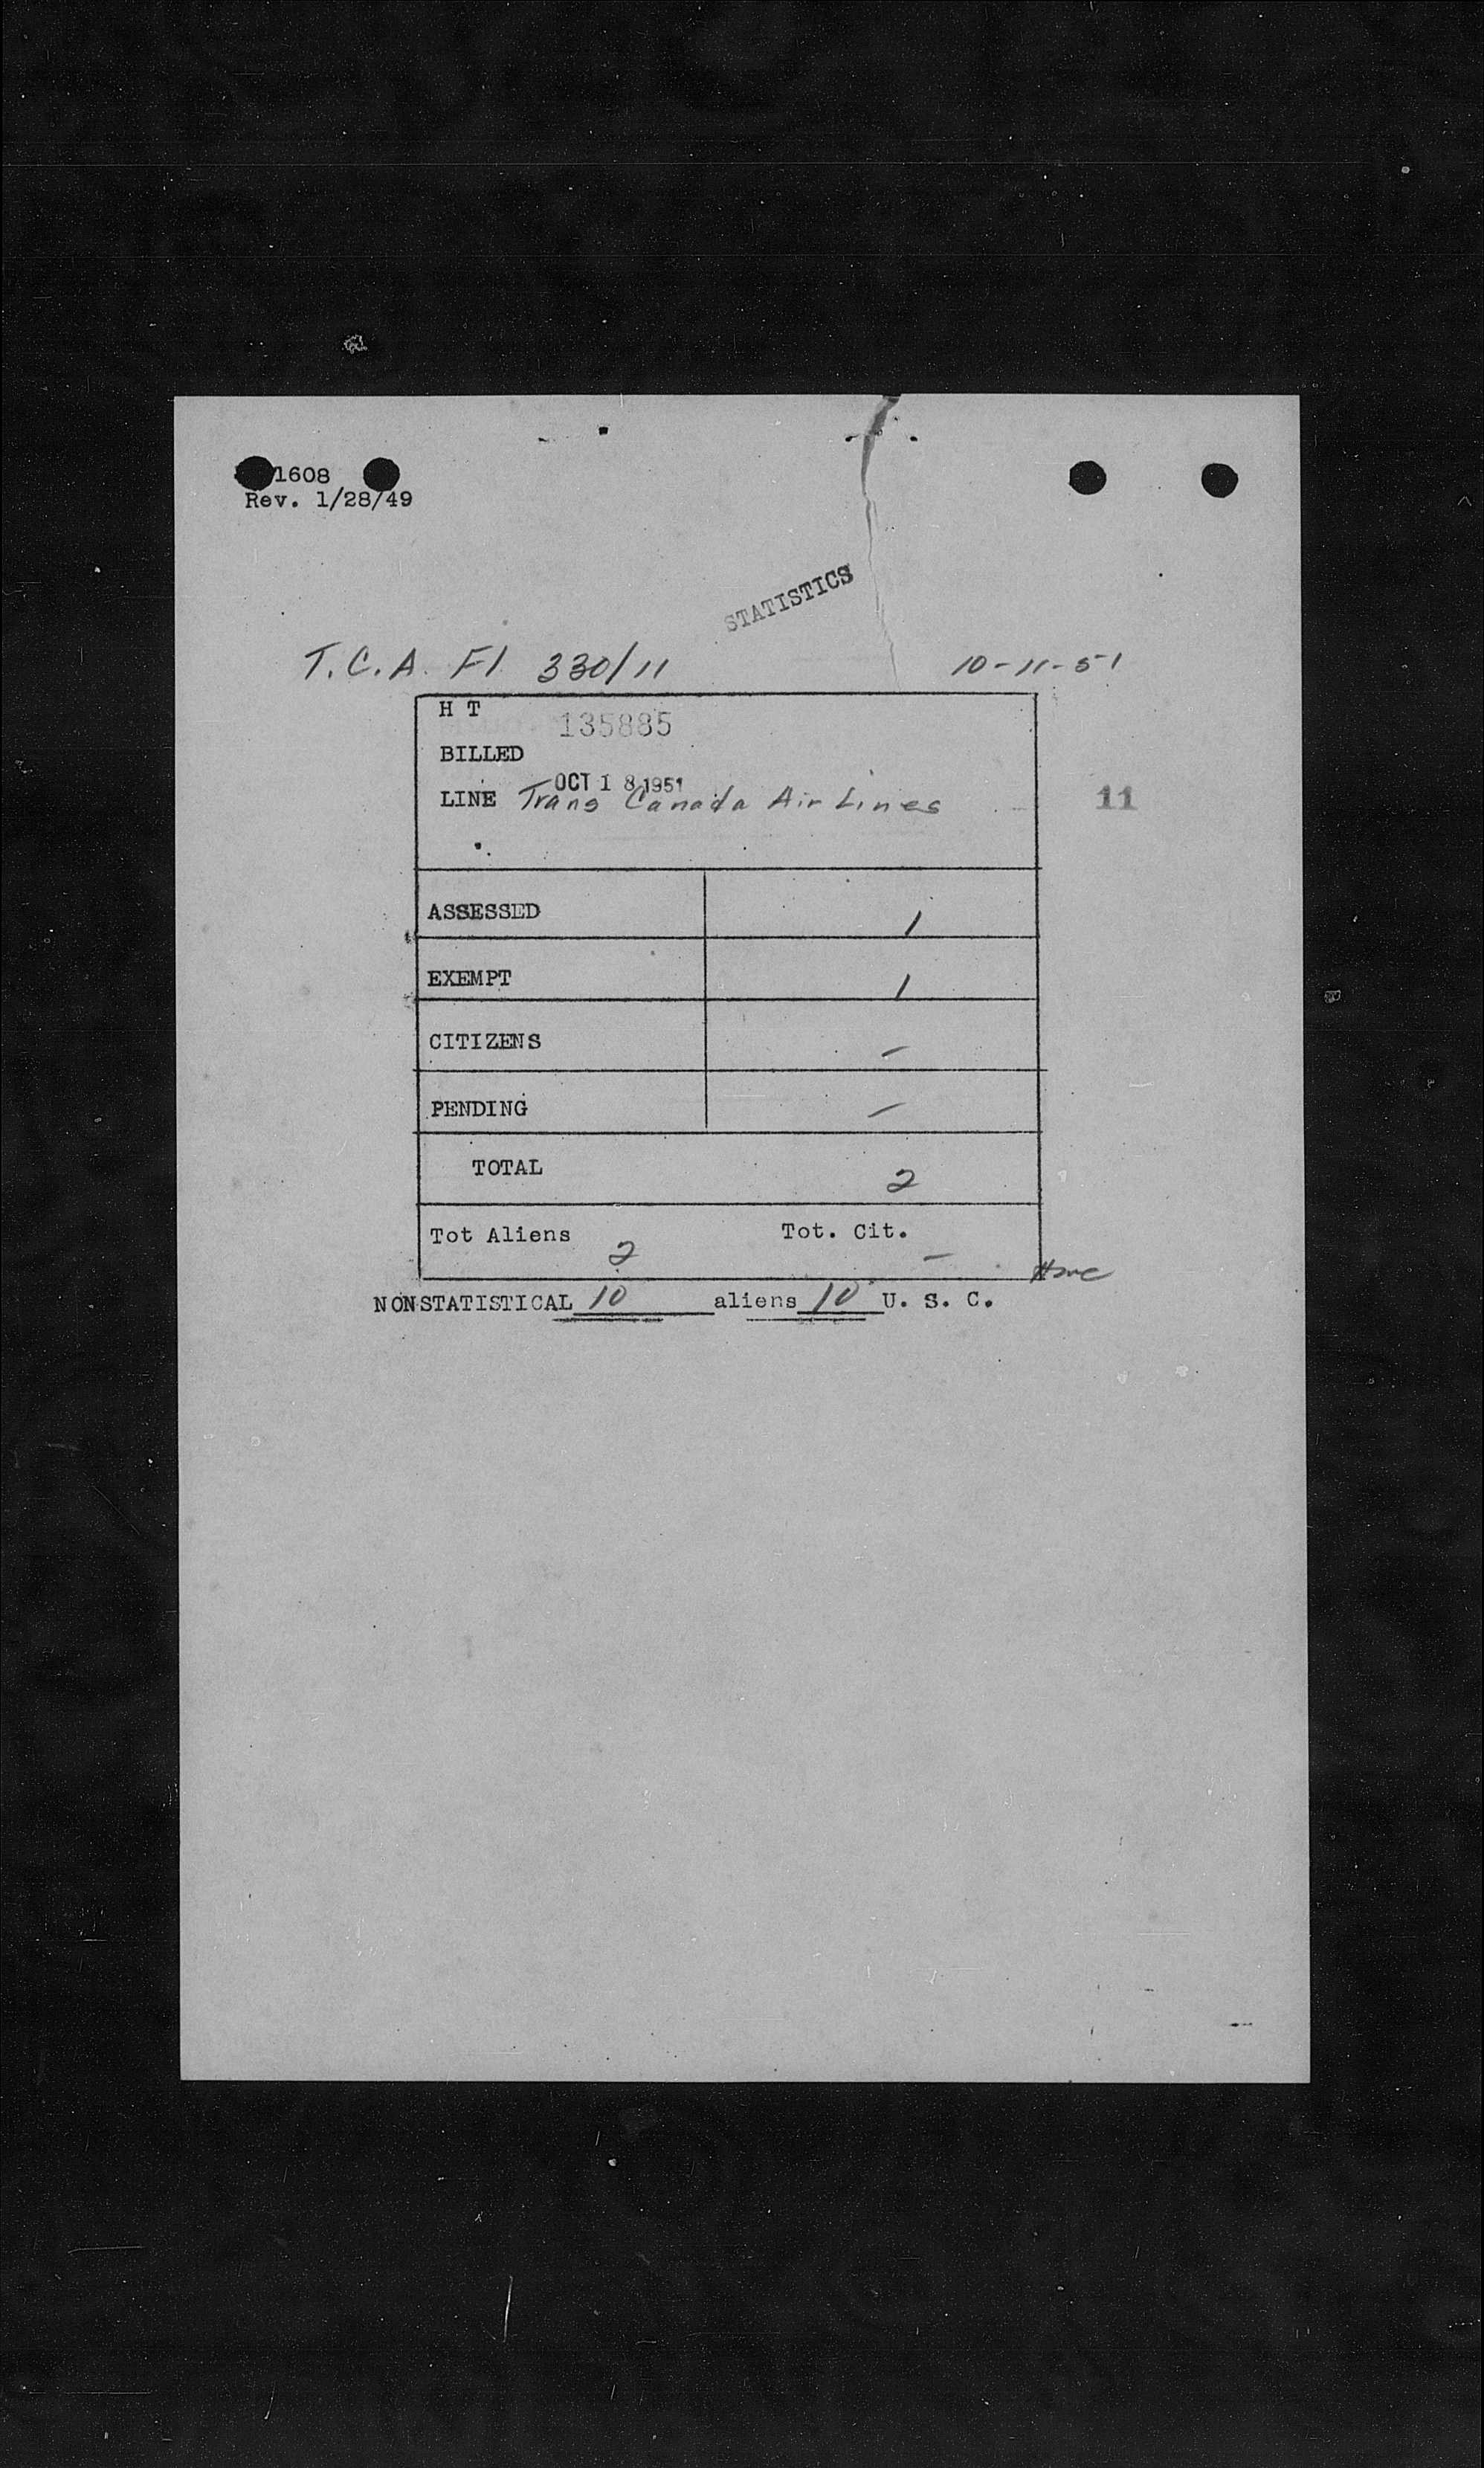 1608
Rev. 1/28/49
STATISTICS
T.C.A. Fl. 330/11 10-11-51
H T
135885
BILLED
OCT 18 1951
LINE Trans Canada Air Lines
11
ASSESSED 1
EXEMPT 1
CITIZENS -
PENDING -
TOTAL 2
Tot Aliens 2 Tot. Cit. -
NONSTATISTICAL 10 aliens 10 U. S. C.